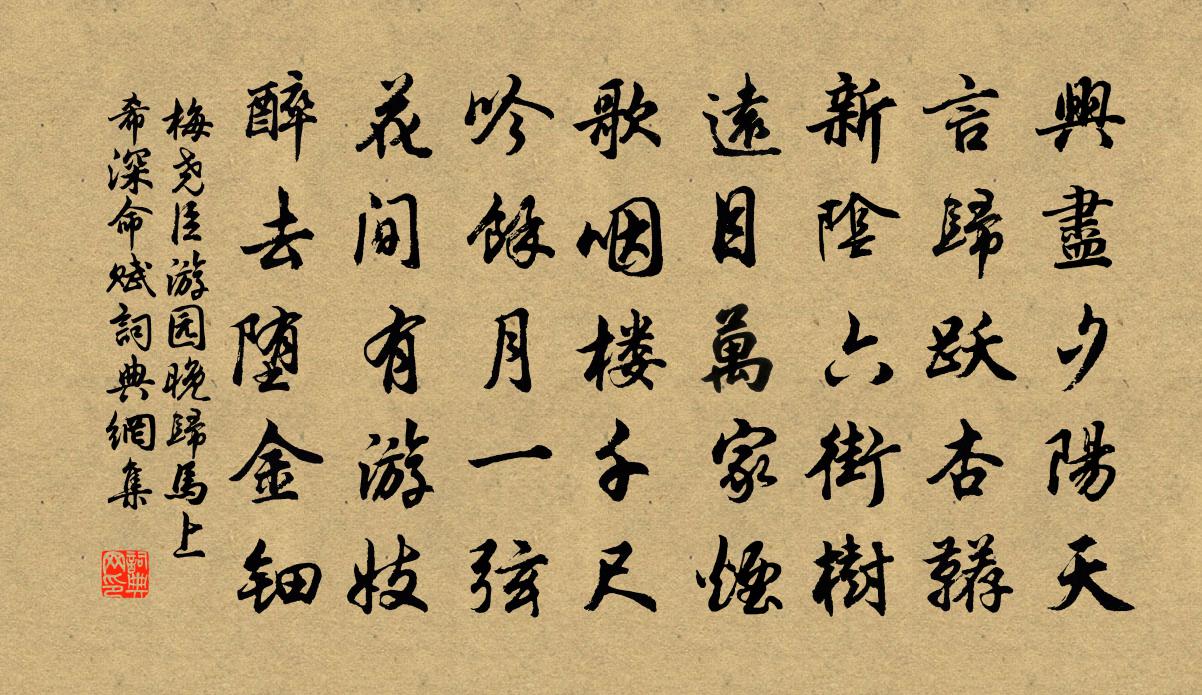 興盡夕陽天
言歸跃杏韉
新陰六街樹
遠目萬家煙
歌咽楼千尺
吟餘月一弦
花间有游妓
醉去堕金钿
梅尧臣游园晚歸馬上
希深命赋詞典網集
詞典网印